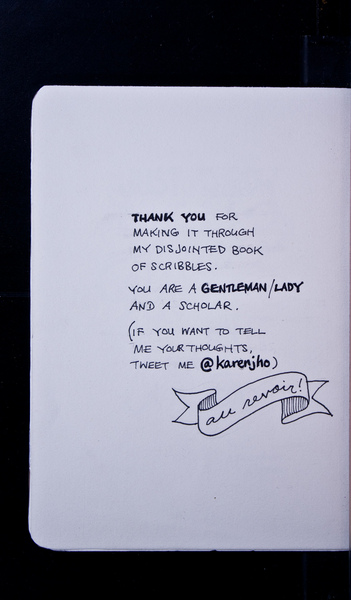 THANK YOU FOR
MAKING IT THROUGH
MY DISJOINTED BOOK
OF SCRIBBLES.
YOU ARE A GENTLEMAN/LADY
AND A SCHOLAR.
(IF YOU WANT TO TELL
ME YOUR THOUGHTS,
TWEET ME @karenjho)
au revoir!